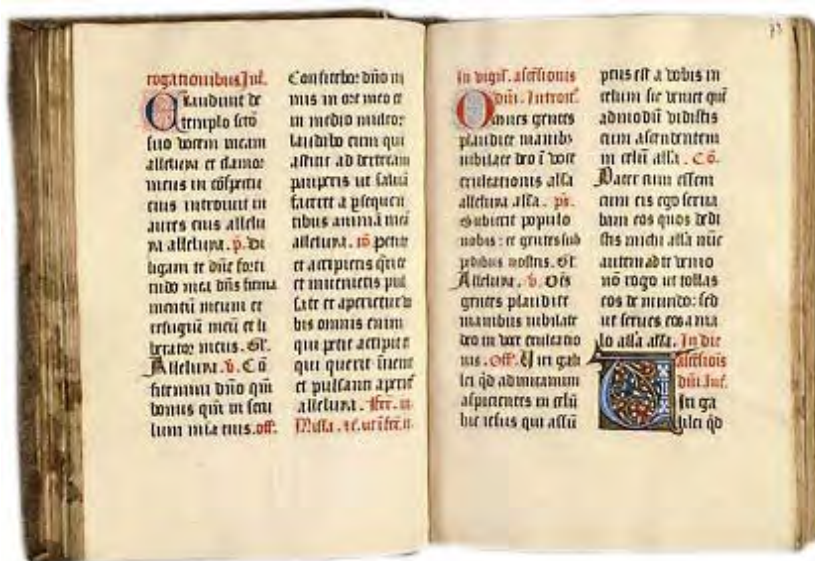 rogationibus Int.
Exaudiuit de
templo scō
suo vocem meam
alleluya et clamor
meus in cōspectu
eius introiuit in
aures eius allelu
ya alleluya. p̄. Di
ligam te dn̄e forti
tudo mea dn̄s firma
mentū meum et
refugiū meū et li
berator meus. Gl'.
Alleluya. v̄. Cō
fitemini dn̄o qm̄
bonus qm̄ in secu
lum mīa eius. off.
Confitebor dn̄o ni
mis in ore meo et
in medio multor
laudabo eum qui
astitit ad dexteram
pauperis ut saluā
faceret a psequen
tibus animā meā
alleluya. cō petite
et accipietis q̄rite
et inuenietis pul
sate et aperietur vo
bis omnis enim
qui petit accipit et
qui querit inuenit
et pulsanti aperiet
alleluya. Fer. iii.
Missa. ut ī fer. ii.
In vigil'. ascēsionis
dn̄i. Introit'.
Omnes gentes
plaudite manibz
iubilate deo ī voce
exultationis alla
alleluya alla. ps.
Subiecit populos
nobis: et gentes sub
pedibus nostris. Gl'.
Alleluya. v̄. Om̄s
gentes plaudite
manibus iubilate
deo in voce exultatio
nis. Off. Viri gali
lei qd̄ admiramini
aspicientes in celū
hic iesus qui assū
ptus est a vobis in
celum sic veniet quē
admodū vidistis
eum ascendentem
in celū alla. Cō.
Pater cum essem
cum eis ego serua
bam eos quos dedi
sti michi alla nūc
autem ad te venio
nō rogo ut tollas
eos de mundo: sed
ut serues eos a ma
lo alla alla. In die
ascēsiōis
dn̄i. Int.
iri ga
lilei qd̄